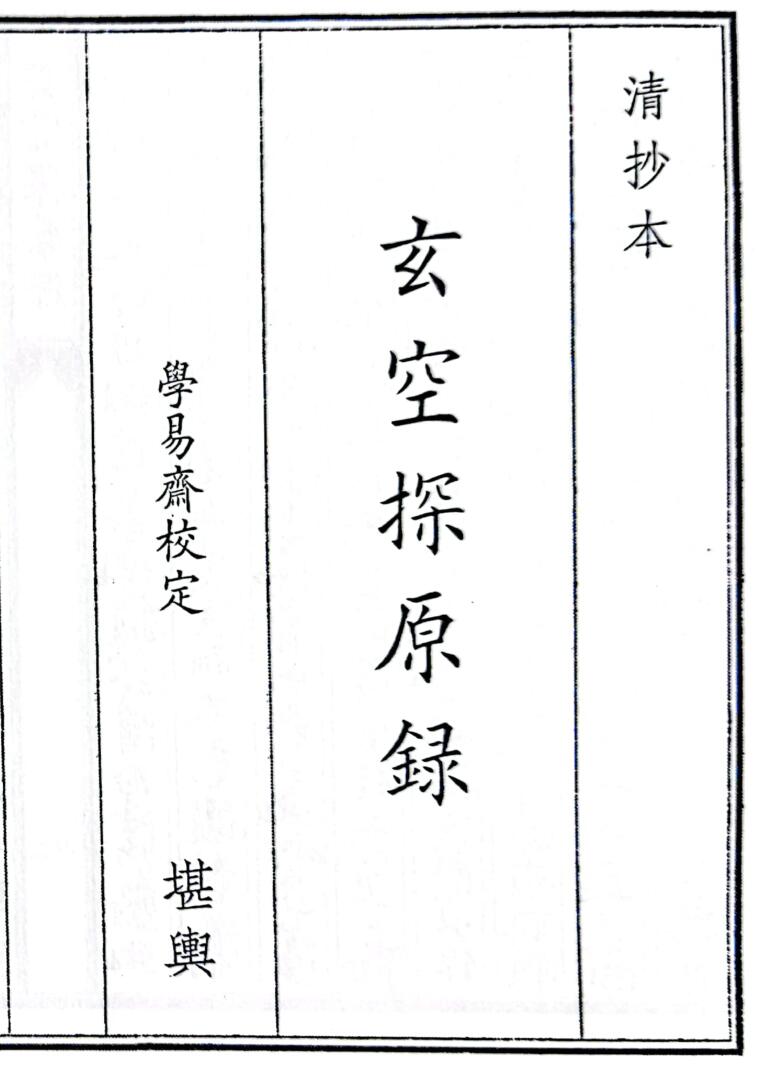 清抄本
玄空探原録
學易齋校定 堪輿